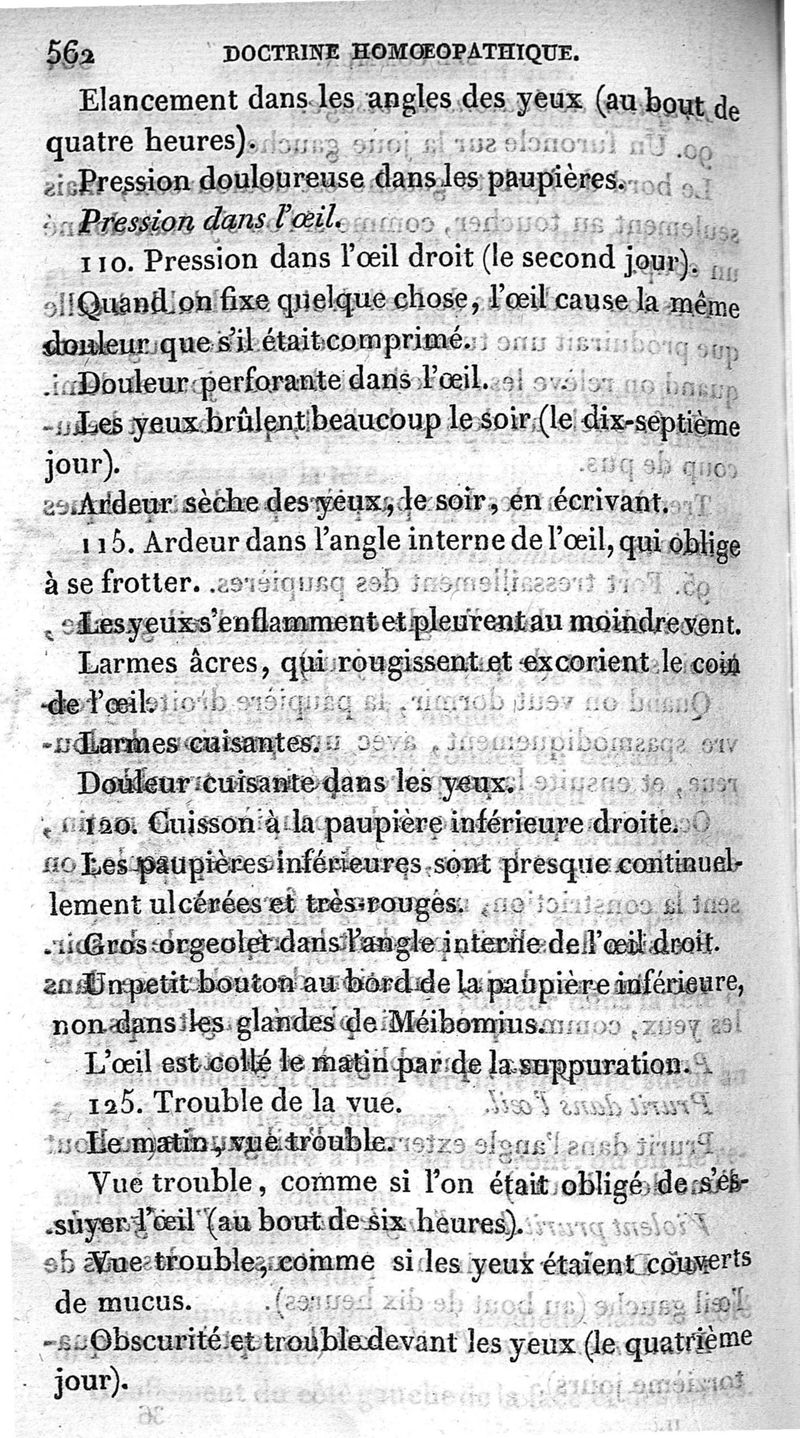 562 DOCTRINE HOMŒOPATHIQUE.
Elancement dans les angles des yeux (au bout de
quatre heures).
Pression douloureuse dans les paupières.
Pression dans l'œil.
110. Pression dans l'œil droit (le second jour).
Quand on fixe quelque chose, l'œil cause la même
douleur que s'il était comprimé.
Douleur perforante dans l'œil.
Les yeux brûlent beaucoup le soir (le dix-septième
jour).
Ardeur sèche des yeux, le soir, en écrivant.
115. Ardeur dans l'angle interne de l'œil, qui oblige
à se frotter.
Les yeux s'enflamment et pleurent au moindre vent.
Larmes âcres, qui rougissent et excorient le coin
de l'œil.
Larmes cuisantes.
Douleur cuisante dans les yeux.
120. Cuisson à la paupière inférieure droite.
Les paupières inférieures sont presque continuel-
lement ulcérées et très-rouges.
Gros orgeolet dans l'angle interne de l'œil droit.
Un petit bouton au bord de la paupière inférieure,
non dans les glandes de Méibomius.
L'œil est collé le matin par de la suppuration.
125. Trouble de la vue.
Le matin, vue trouble.
Vue trouble, comme si l'on était obligé de s'es-
suyer l'œil (au bout de six heures).
Vue trouble, comme si les yeux étaient couverts
de mucus.
Obscurité et trouble devant les yeux (le quatrième
jour).